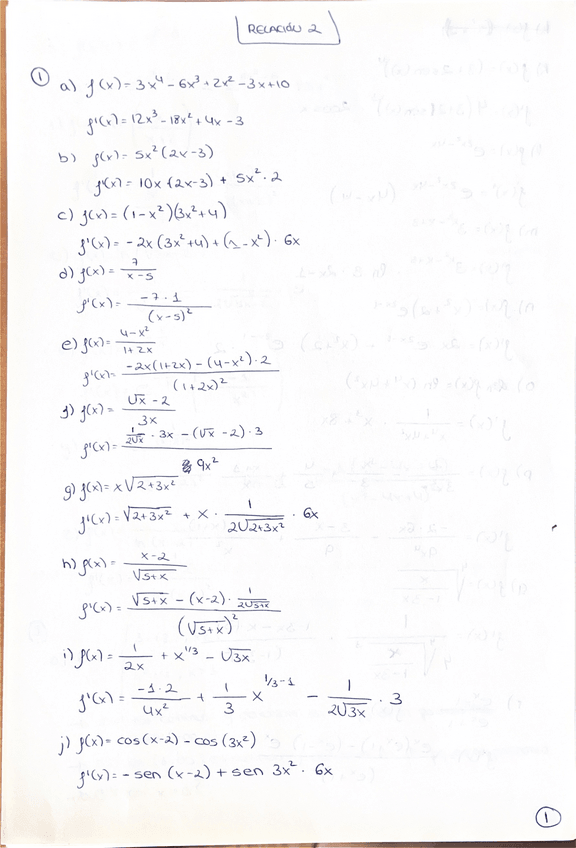 RELACIÓN 2
1
a) f(x) = 3x⁴ - 6x³ + 2x² - 3x + 10
f'(x) = 12x³ - 18x² + 4x - 3
b) f(x) = 5x² (2x - 3)
f'(x) = 10x (2x - 3) + 5x² · 2
c) f(x) = (1 - x²)(3x² + 4)
f'(x) = -2x (3x² + 4) + (1 - x²) · 6x
d) f(x) = 7 / (x - 5)
f'(x) = (-7 · 1) / (x - 5)²
e) f(x) = (4 - x²) / (1 + 2x)
f'(x) = (-2x (1 + 2x) - (4 - x²) · 2) / (1 + 2x)²
f) f(x) = (√x - 2) / 3x
f'(x) = (1/(2√x) · 3x - (√x - 2) · 3) / 9x²
g) f(x) = x √(2 + 3x²)
f'(x) = √(2 + 3x²) + x · 1/(2√(2 + 3x²)) · 6x
h) f(x) = (x - 2) / √(5 + x)
f'(x) = (√(5 + x) - (x - 2) · 1/(2√(5 + x))) / (√(5 + x))²
i) f(x) = 1/(2x) + x^(1/3) - √(3x)
f'(x) = (-1 · 2)/(4x²) + 1/3 x^(1/3 - 1) - 1/(2√(3x)) · 3
j) f(x) = cos (x - 2) - cos (3x²)
f'(x) = - sen (x - 2) + sen 3x² · 6x
1